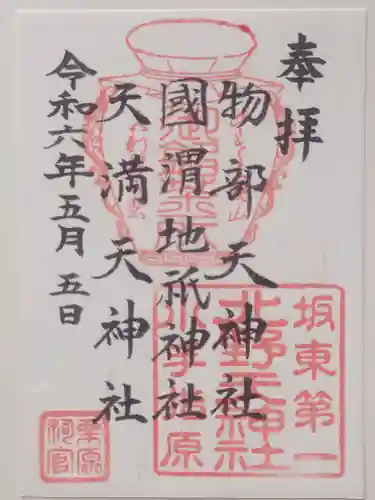 奉拝
物部天神社
國渭地祇神社
天満天神社
令和六年五月五日
坂東第一
北野天神社